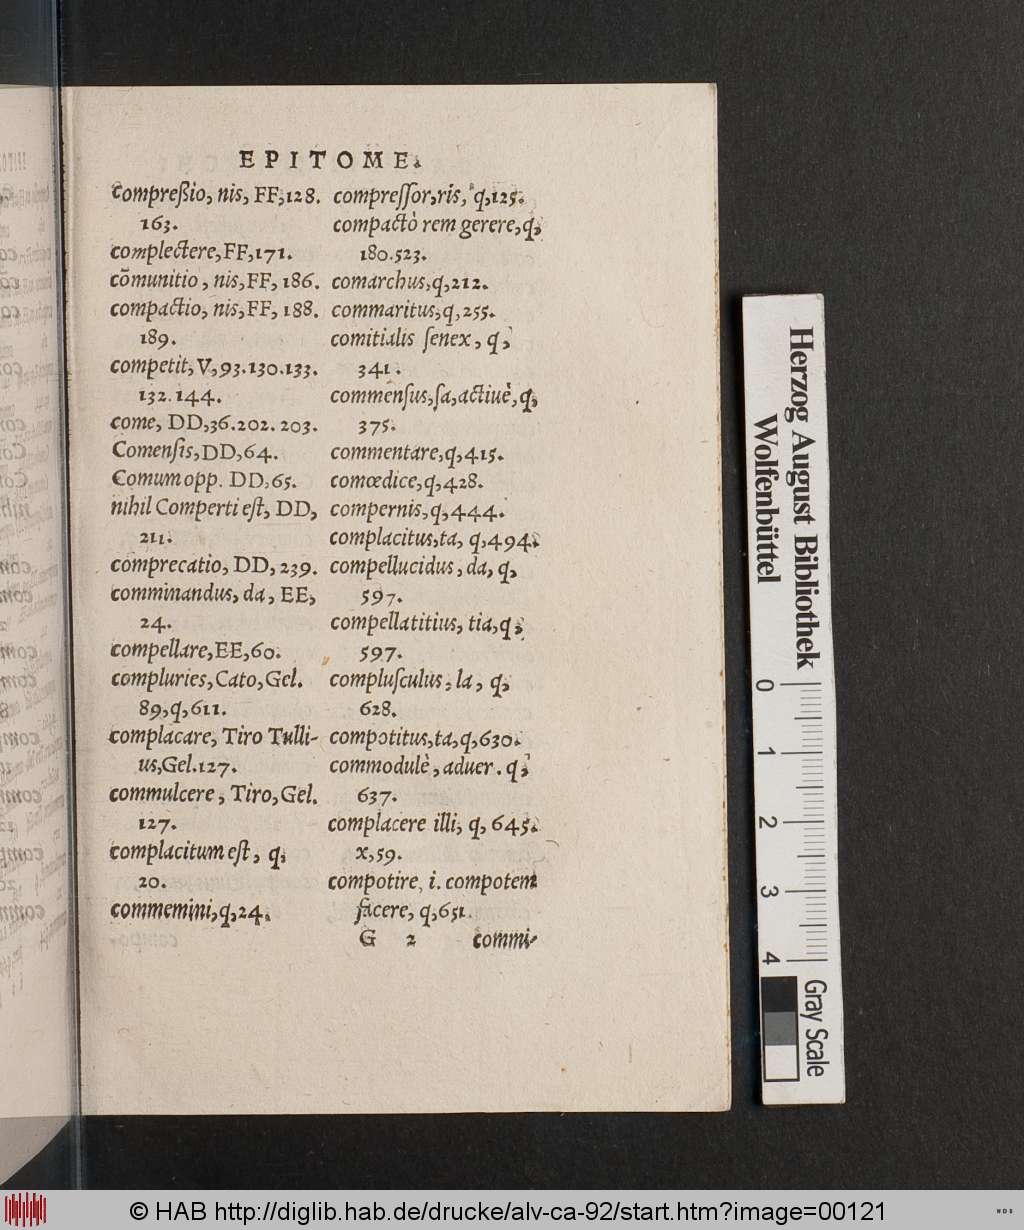 EPITOME.
Compreßio, nis, FF, 128.
163.
complectere, FF, 171.
cõmunitio, nis, FF, 186.
compactio, nis, FF, 188.
189.
competit, V, 93.130.133.
132.144.
come, DD, 36.202.203.
Comensis, DD, 64.
Comum opp. DD, 65.
nihil Comperti est, DD,
211.
comprecatio, DD, 239.
comminandus, da, EE,
24.
compellare, EE, 60.
compluries, Cato, Gel.
89, q, 611.
complacare, Tiro Tulli-
us, Gel. 127.
commulcere, Tiro, Gel.
127.
complacitum est, q,
20.
commemini, q, 24.
compressor, ris, q, 125.
compactò rem gerere, q,
180.523.
comarchus, q, 212.
commaritus, q, 255.
comitialis senex, q,
341.
commensus, sa, actiuè, q,
375.
commentare, q, 415.
comœdice, q, 428.
compernis, q, 444.
complacitus, ta, q, 494.
compellucidus, da, q,
597.
compellatitius, tia, q,
597.
complusculus, la, q,
628.
compotitus, ta, q, 630.
commodulè, aduer. q,
637.
complacere illi, q, 645.
x, 59.
compotire, i. compotem
facere, q, 651.
G 2 commi-
Herzog August Bibliothek
Wolfenbüttel
0 1 2 3 4
Gray Scale
© HAB http://diglib.hab.de/drucke/alv-ca-92/start.htm?image=00121